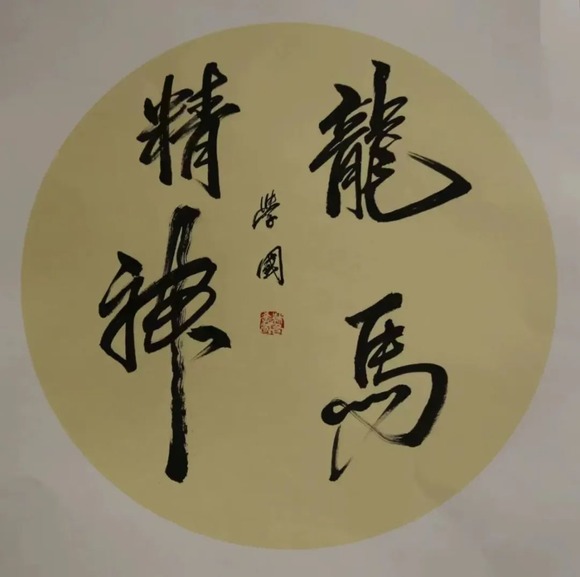 龍馬
精神
學國